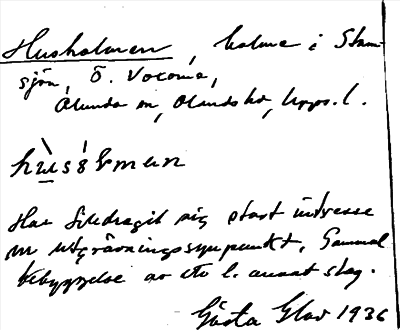 Husholmen, holme i Stam-
sjön, Ö. Vocoma,
Ålunda sn, Olands hd, Upps. l.
Har tilldragit sig stort intresse
ur utgrävningssynpunkt. Gammal
bebyggelse av ett l. annat slag.
Gösta Glad 1936